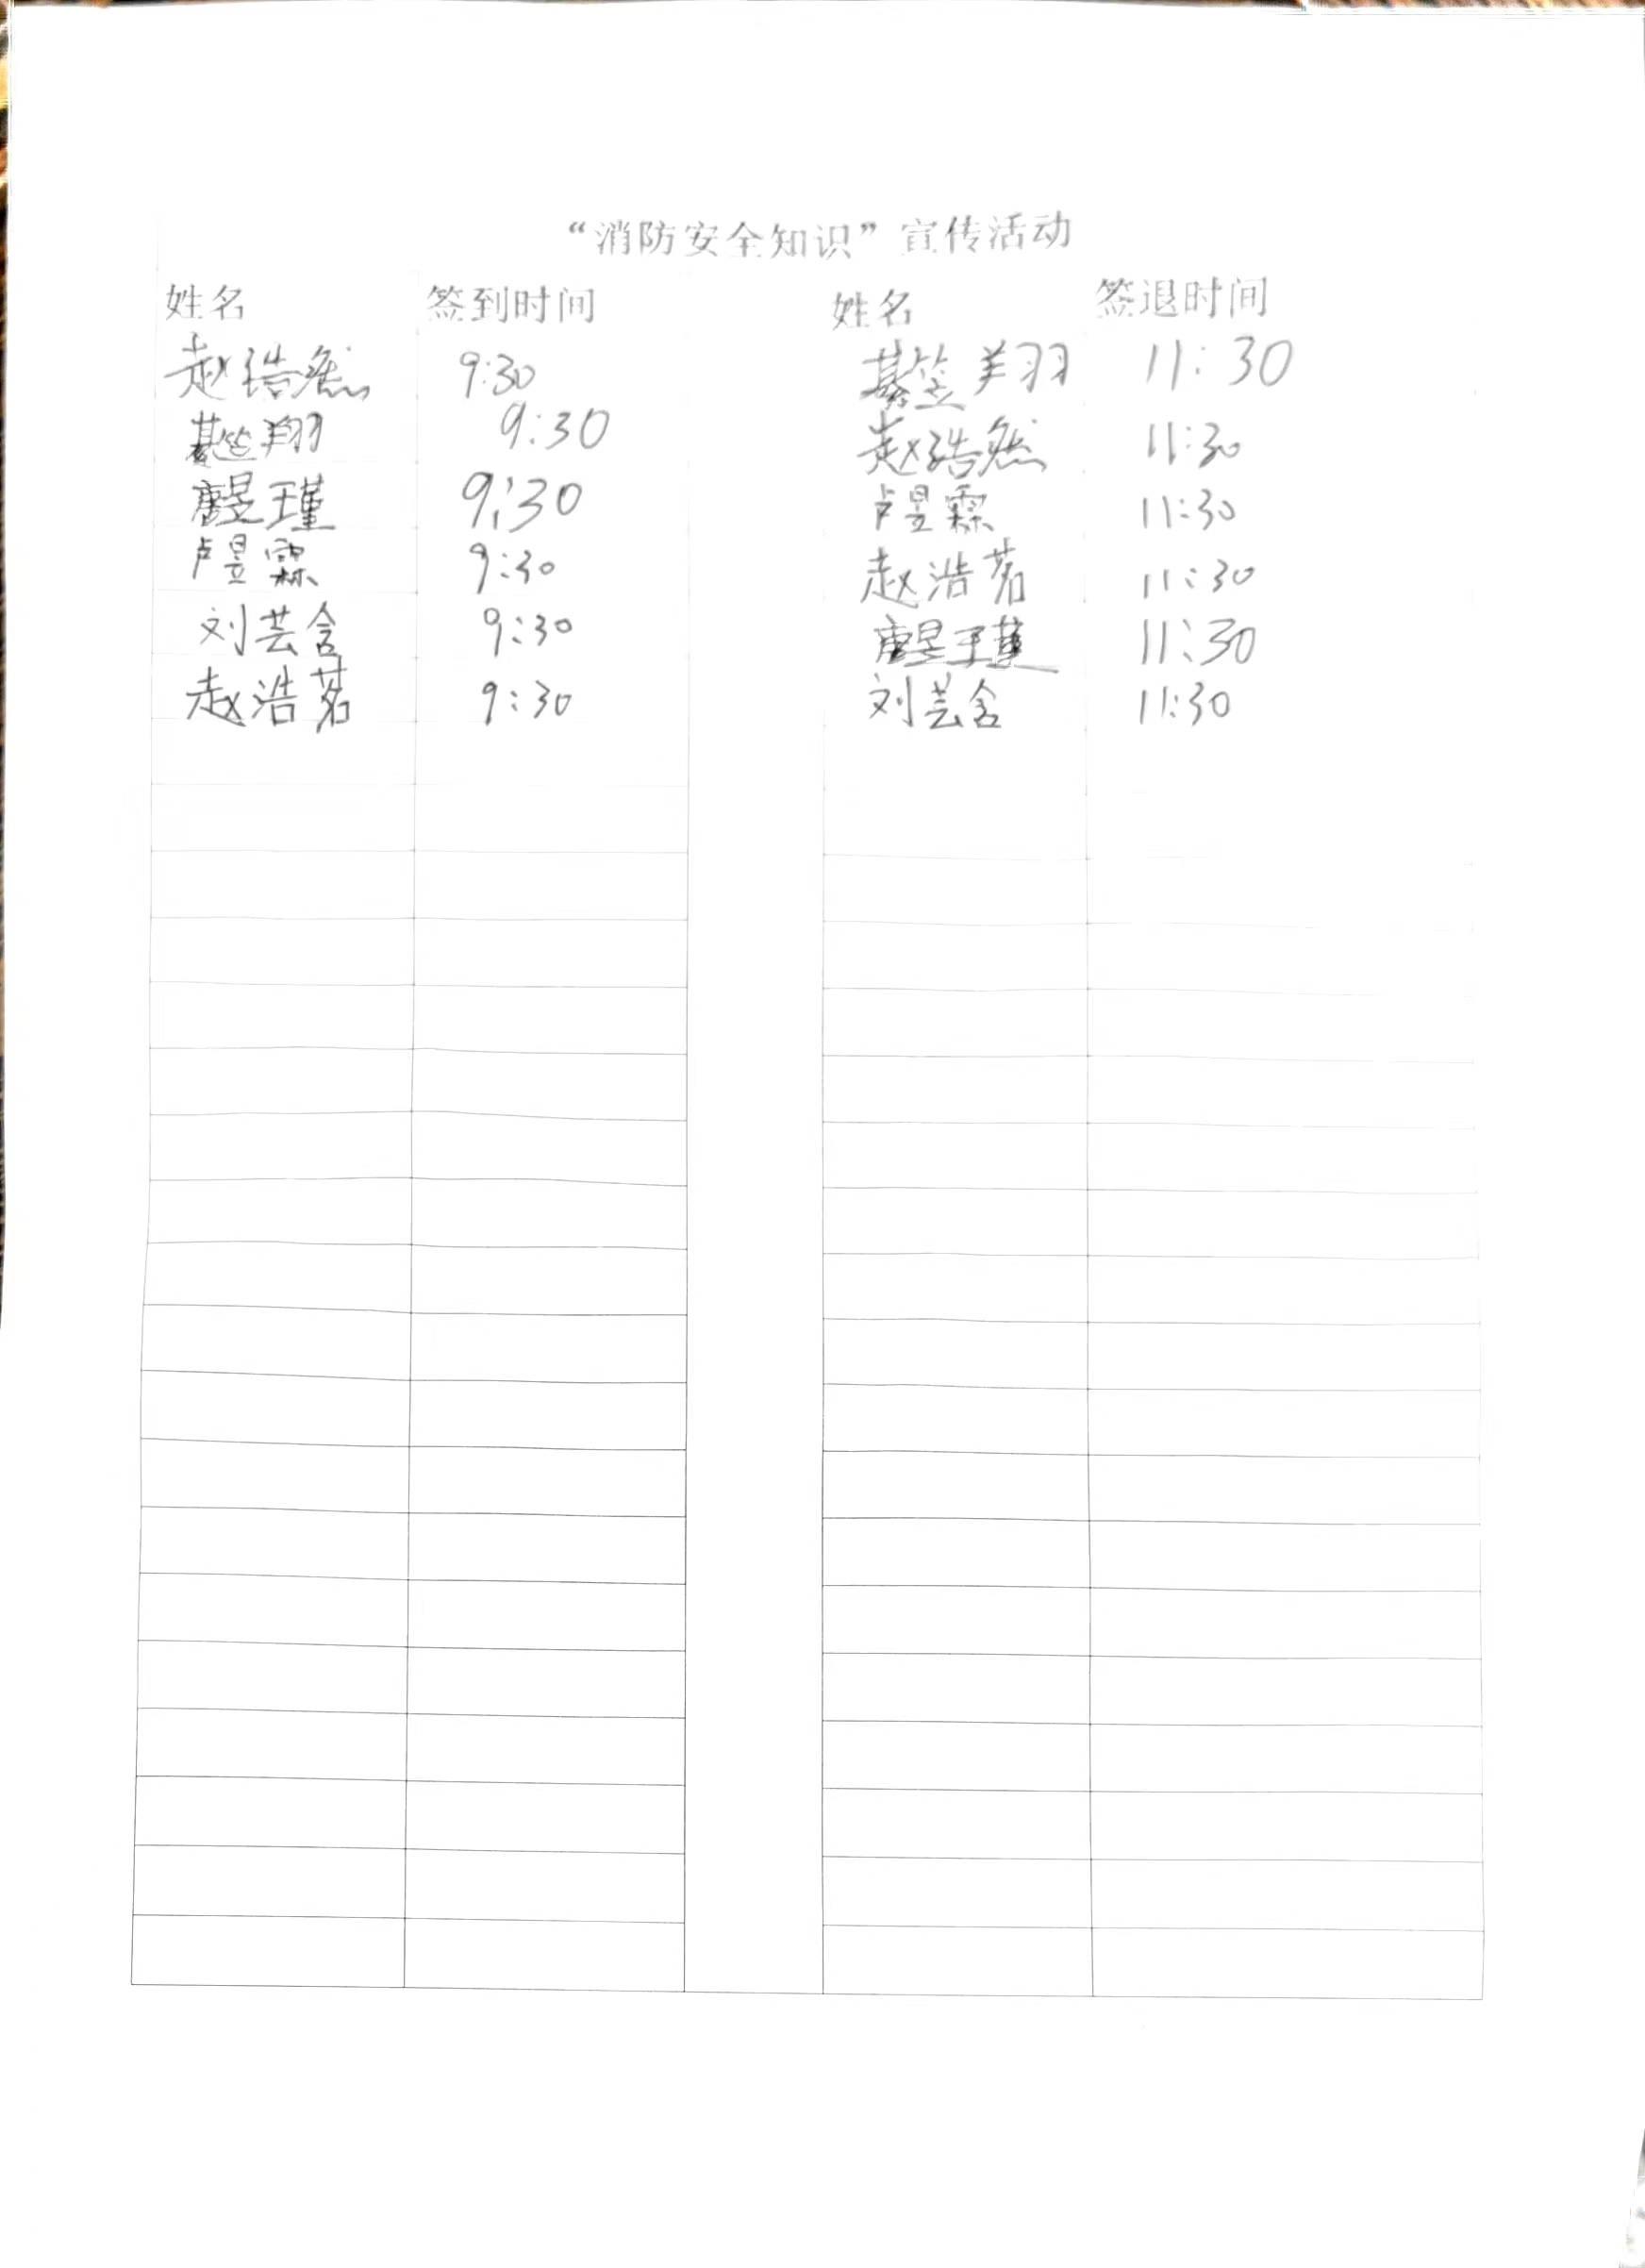 “消防安全知识”宣传活动
姓名 签到时间 姓名 签退时间
赵浩然 9:30 綦笠翔 11:30
綦笠翔 9:30 赵浩然 11:30
唐昱瑾 9:30 卢昱霖 11:30
卢昱霖 9:30 赵浩茗 11:30
刘芸含 9:30 唐昱瑾 11:30
赵浩茗 9:30 刘芸含 11:30